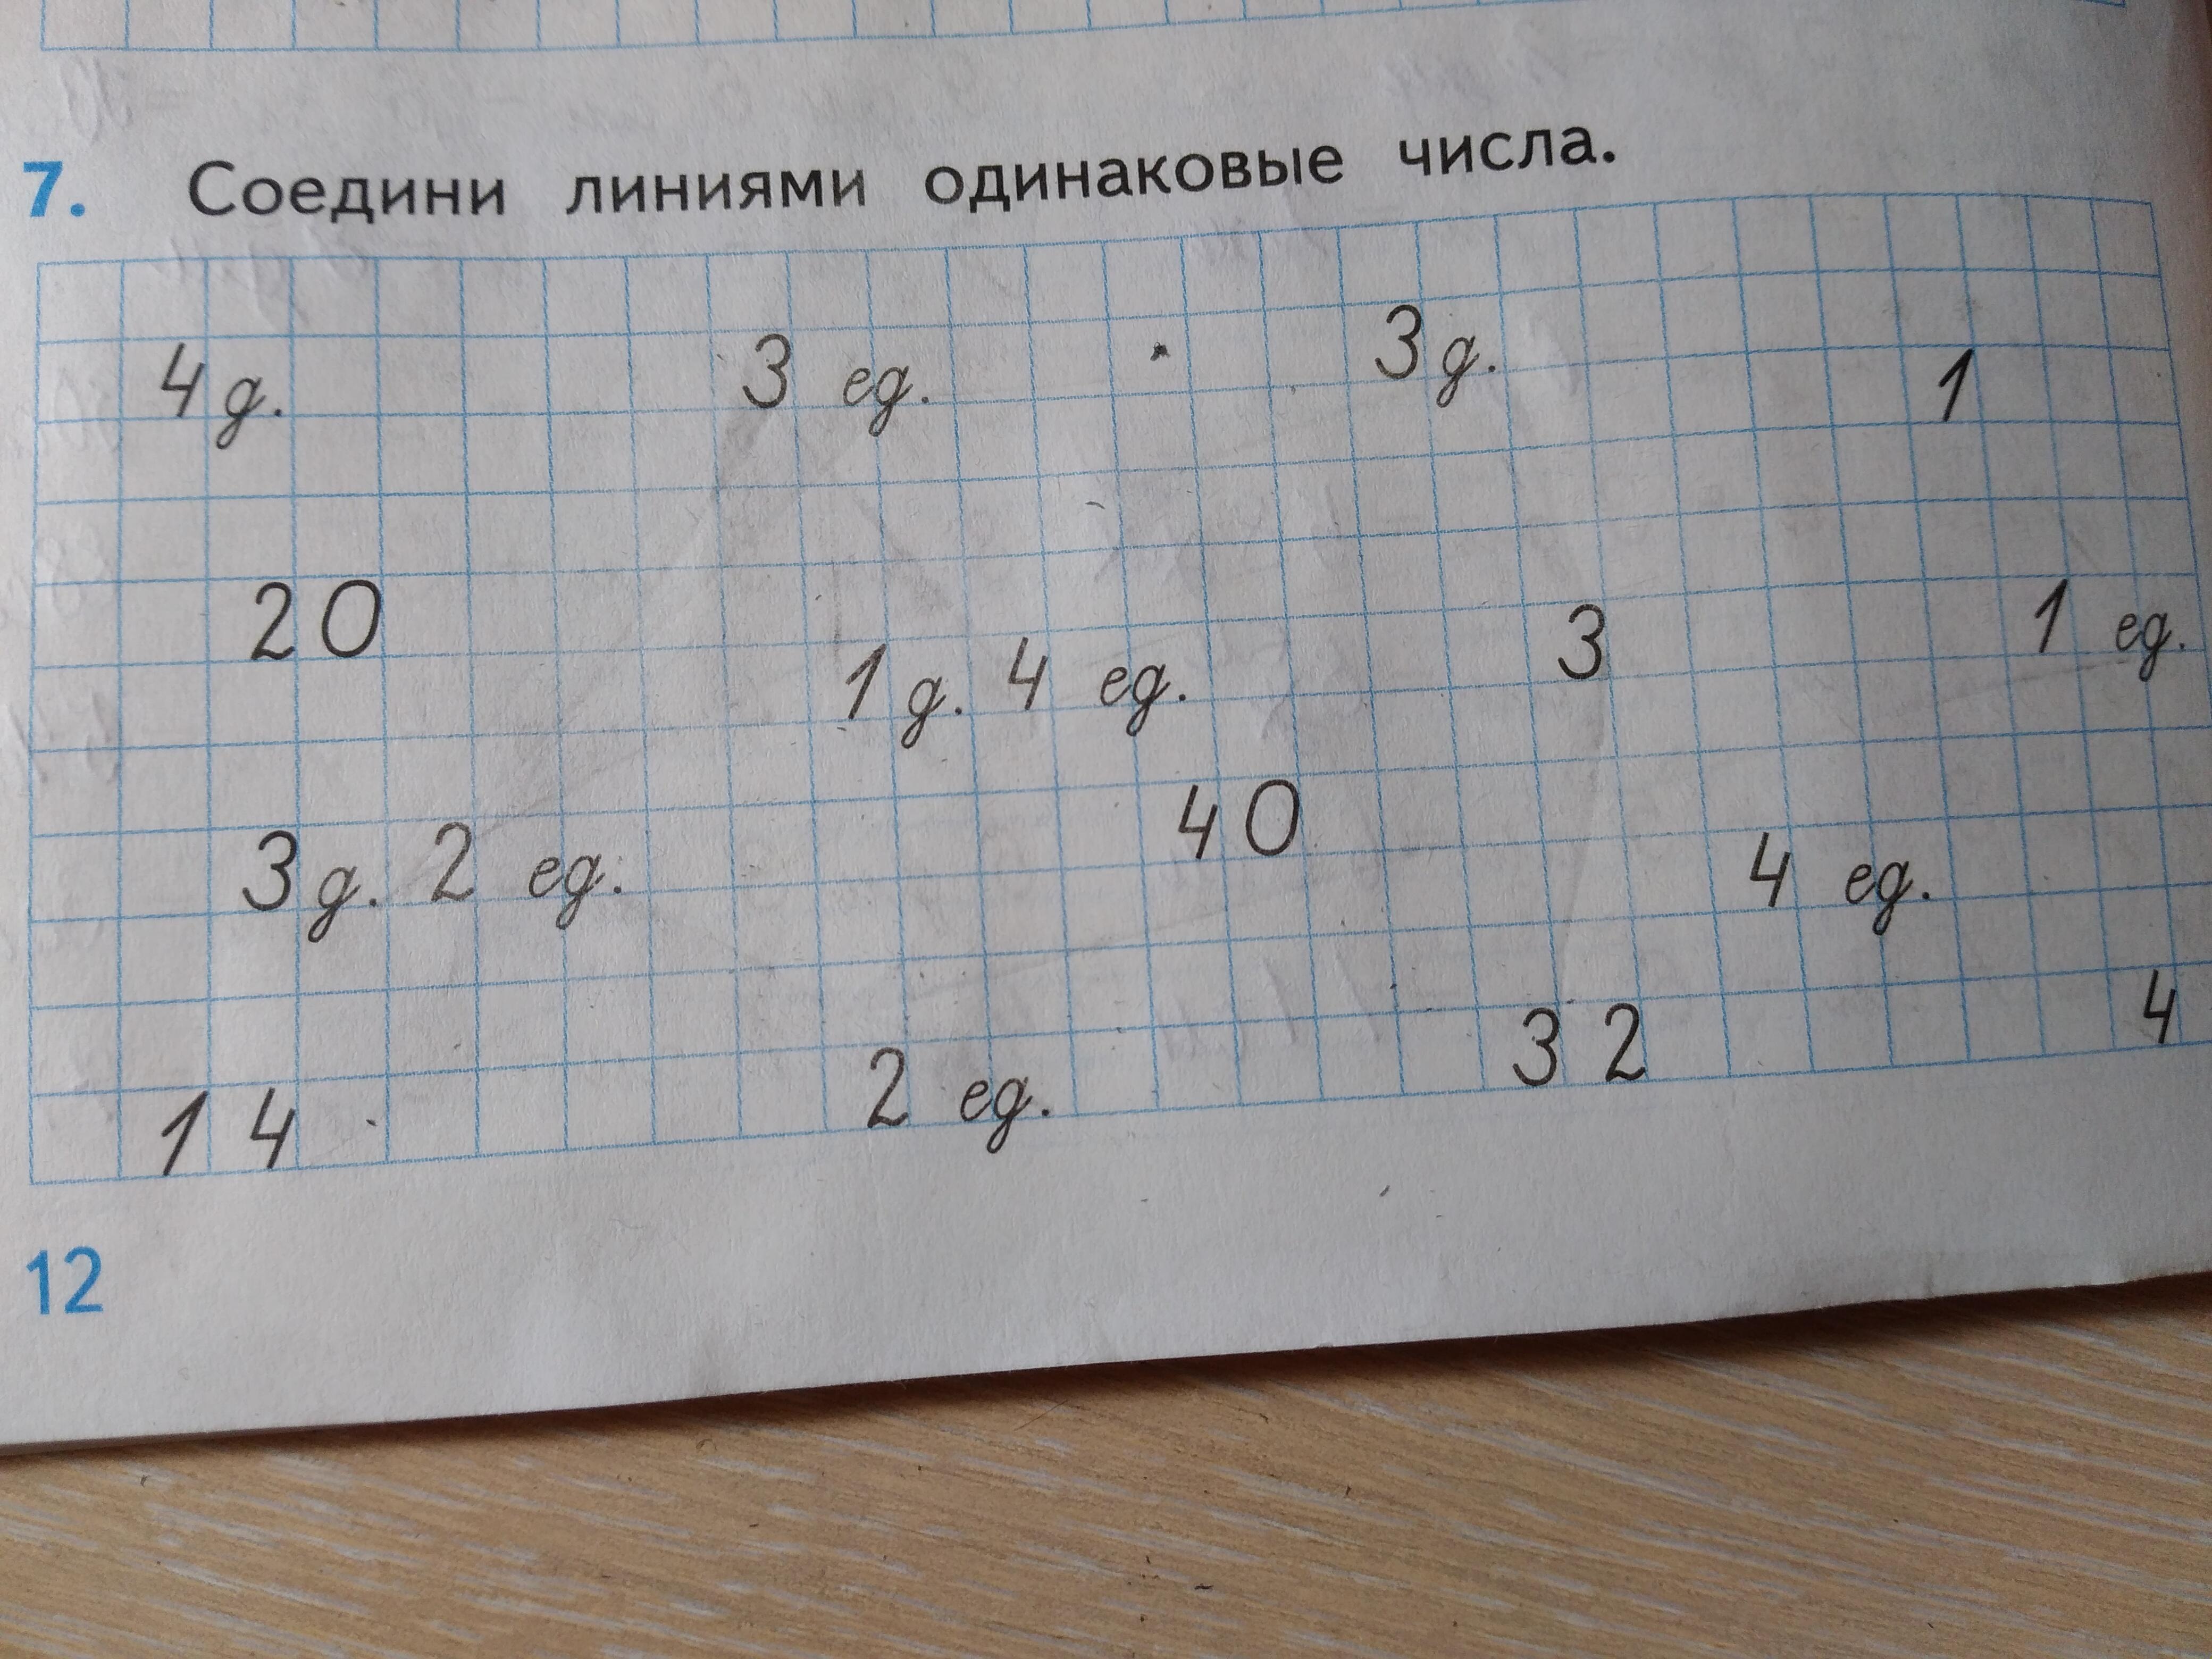 7. Соедини линиями одинаковые числа.
4 д. 3 ед. 3 д. 1
20 1 д. 4 ед. 3 1 ед.
3 д. 2 ед. 40 4 ед.
14 2 ед. 32 4
12